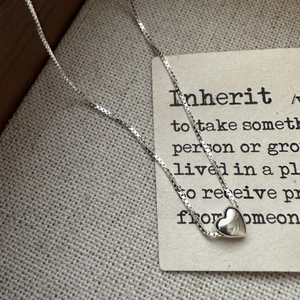 Inherit /
to take someth
person or gro
lived in a pl
to receive pr
from omeon